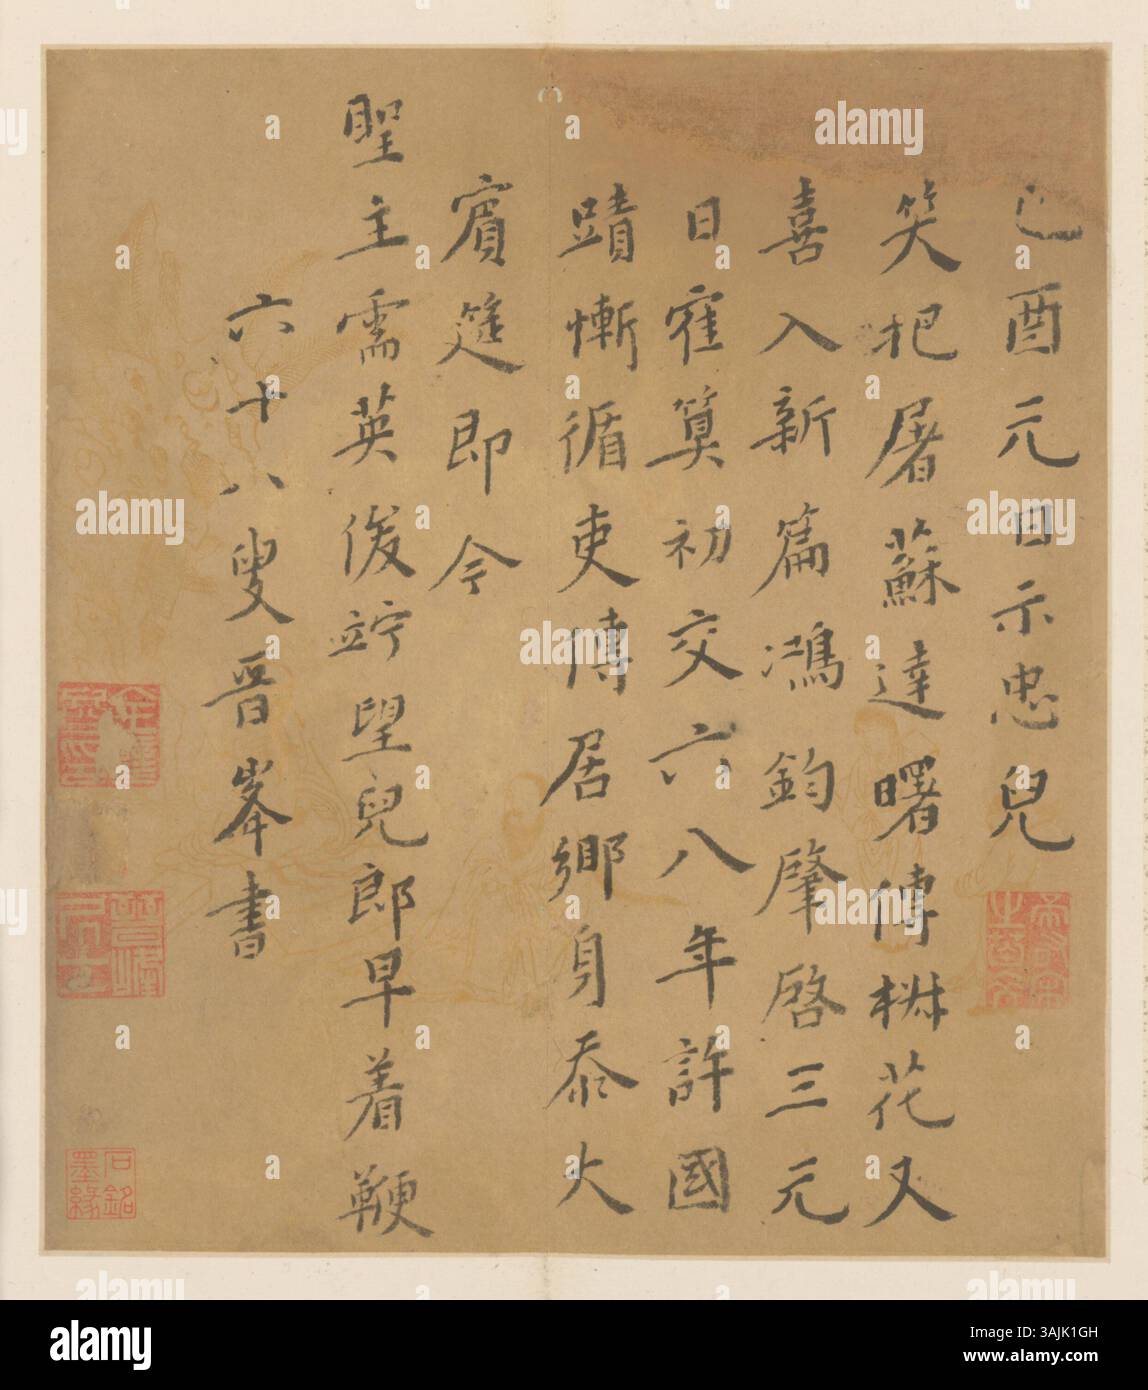 己酉元日示忠兒
笑把屠蘇達曙傳椒花又
喜入新篇鴻鈞肇啓三元
日寉算初交六八年許國
蹟慚循吏傳居鄉身忝大
賓筵即今
聖主需英俊竚望兒郎早着鞭
六十八叟晉峯書
晉峰居士
石銘墨緣
alamy
a
Image ID: 3AJK1GH
www.alamy.com